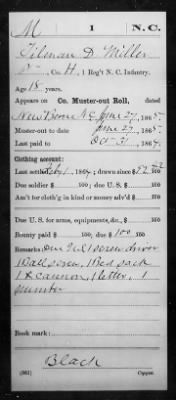 M 1 N.C.
Tilman D Miller
Co. H, 1 Reg't N. C. Infantry.
Age 18 years.
Appears on Co. Muster-out Roll, dated
New Berne N.C. June 27, 1865.
Muster-out to date June 27, 1865.
Last paid to Oct 31, 1864.
Clothing account:
Last settled 186 ; drawn since $ 100
Due soldier $ 100; due U. S. $ 100
Am't for cloth'g in kind or money adv'd $ 100
Due U. S. for arms, equipments, &c., $ 100
Bounty paid $ 100; due $ 100 100
Remarks: Due U.S. 1 screw driver
1 Ball screw,
1 letter, 1
number
Book mark:
Black
(361) Copyist.